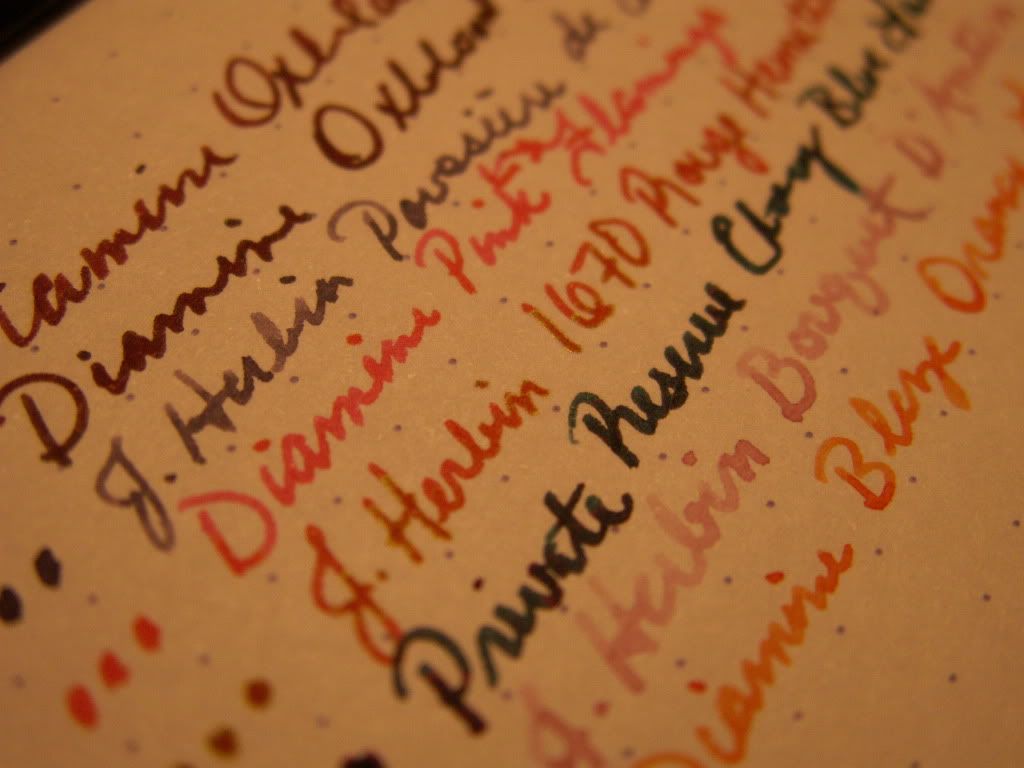 iamine Oxbloo
Diamine Oxbloo
J. Herbin Poussière de
Diamine Pink Flamingo
J. Herbin 1670 Rouge Hemati
Private Reserve Ebony Blue
J. Herbin Bouquet D'Antan
Diamine Blaze Orang